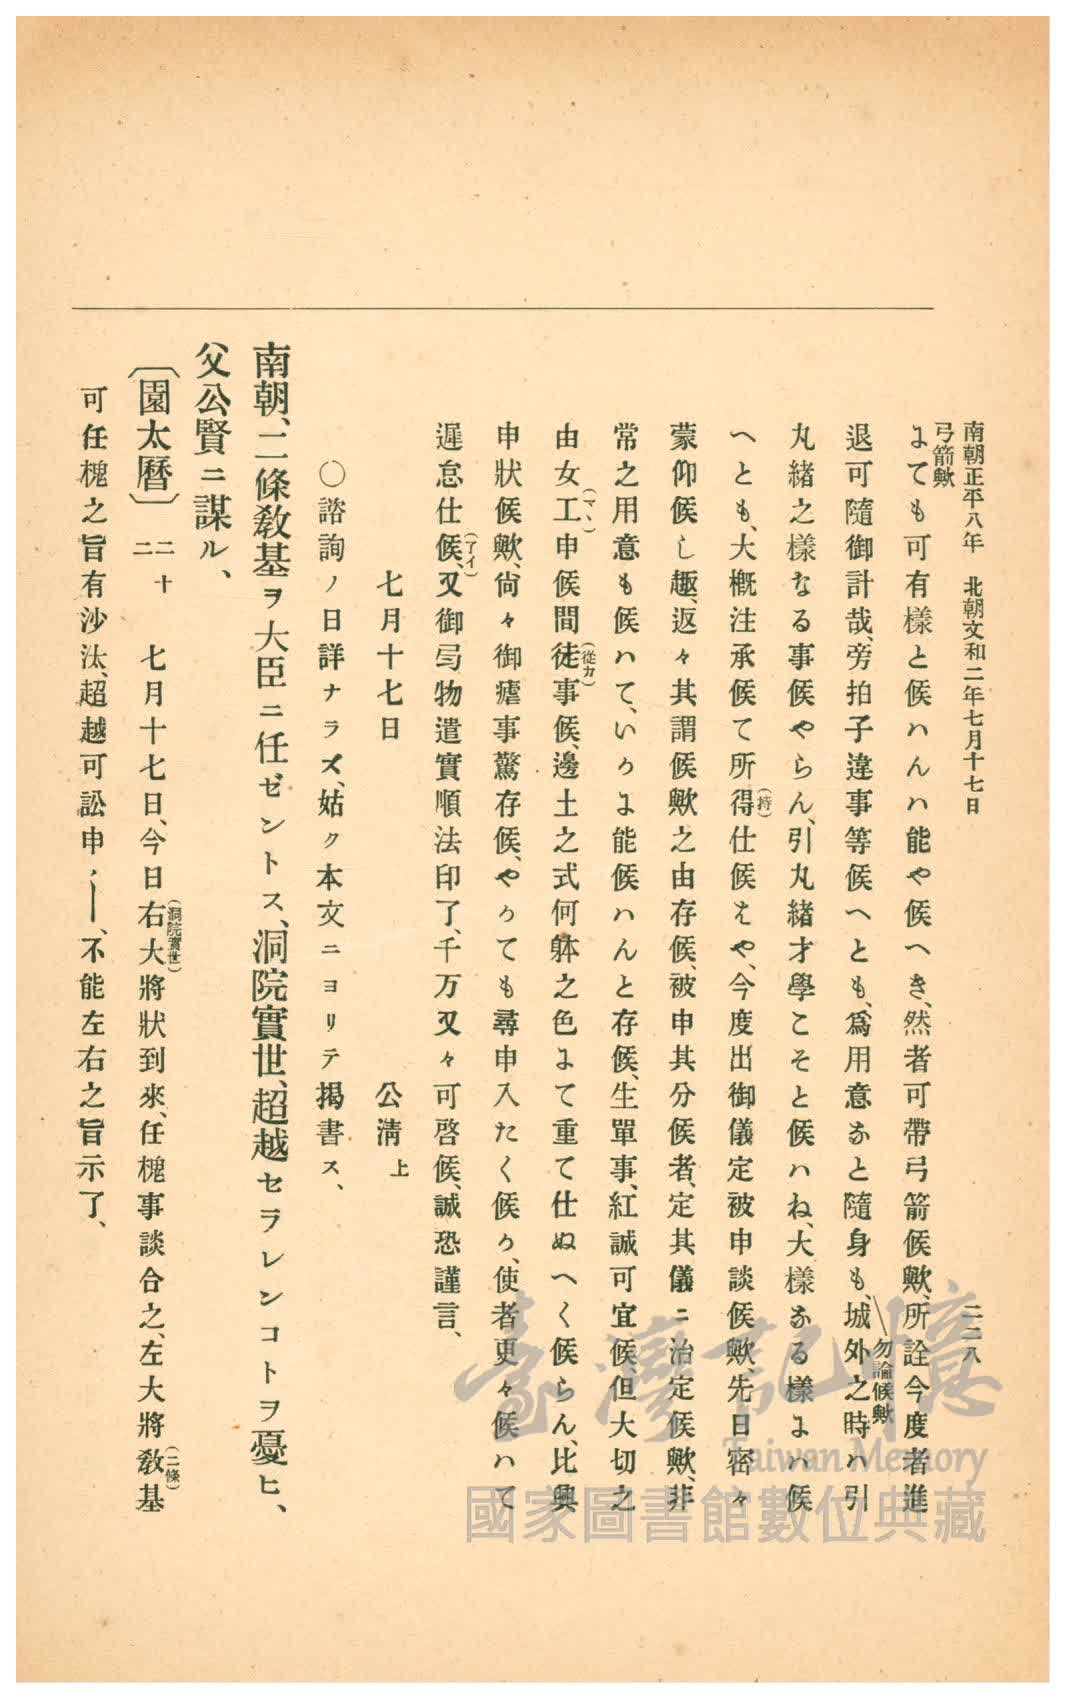 南朝正平八年　北朝文和二年七月十七日
二二八
弓箭歟
よても可有樣と候ハんハ能や候へき、然者可帶弓箭候歟、所詮今度者進
勿論候歟
退可隨御計哉、旁拍子違事等候へとも、爲用意あと隨身も、城外之時ハ引
丸緒之樣なる事候やらん、引丸緒才學こそと候ハね、大樣ある樣よハ候
へとも、大概注承候て所得仕候まや、今度出御儀定被申談候歟、先日密々
(持)
蒙仰候し趣、返々其謂候歟之由存候、被申其分候者、定其儀ニ治定候歟、非
常之用意も候ハて、いかよ能候ハんと存候、生單事、紅誠可宜候、但大切之
由女工申候間徒事候、邊土之式何躰之色よて重て仕ぬへく候らん、比興
(マヽ)
(從カ)
申狀候歟、尙々御瘧事驚存候、やかても尋申入たく候か、使者更々候ハて
遲怠仕候、又御局物遣實順法印了、千万又々可啓候、誠恐謹言、
(了イ)
七月十七日　公淸上
〇諮詢ノ日詳ナラズ、姑ク本文ニヨリテ揭書ス、
南朝、二條敎基ヲ大臣ニ任ゼントス、洞院實世、超越セラレンコトヲ憂ヒ、
父公賢ニ謀ル、
〔園太曆〕二十二　七月十七日、今日右大將狀到來、任槐事談合之、左大將敎基
(洞院實世)
(二條)
可任槐之旨有沙汰、超越可訟申〳〵、不能左右之旨示了、
臺灣記憶
Taiwan Memory
國家圖書館數位典藏